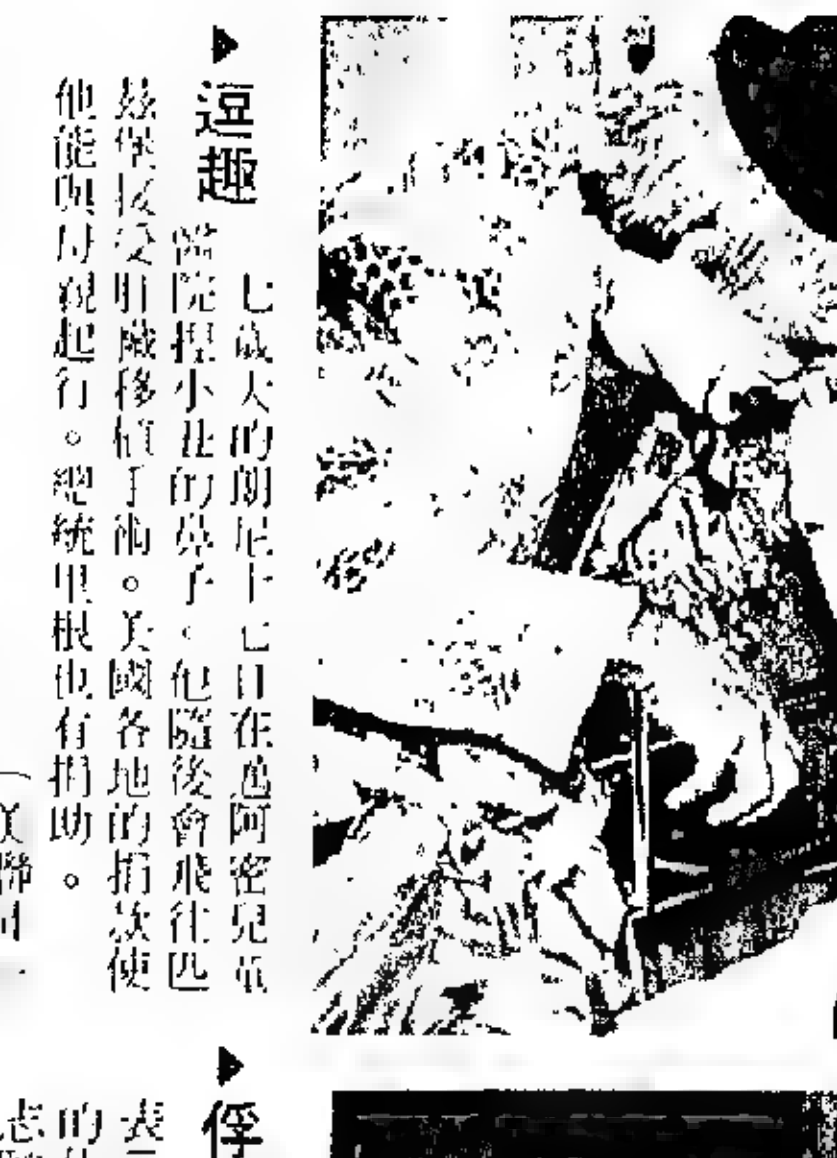 ▶逗趣
七歲大的朗尼十七日在邁阿密兒童
醫院捏小丑的鼻子。他隨後會飛往匹
茲堡接受肝臟移植手術。美國各地的捐款使
他能與母親起行。總統里根也有捐助。
(美聯
▶俘
表
的
志